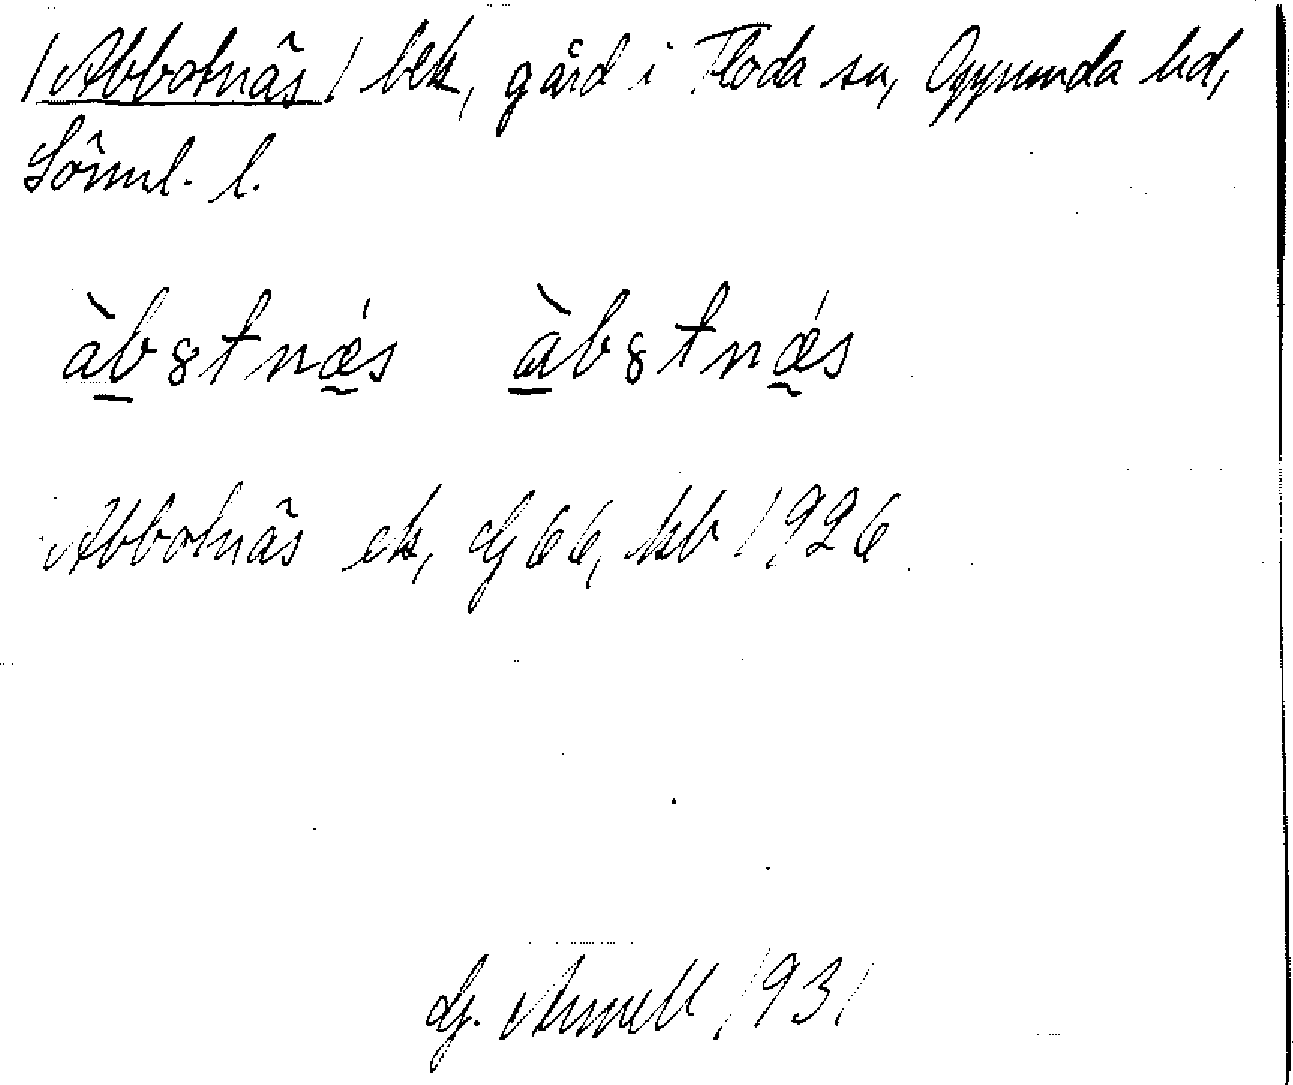 /Abbotnäs/ bek, gård i Floda sn, Oppunda hd,
Sörml. l.
àb̲ȣtnǽ̰s à̲bȣtnǽ̰s
Abbotnäs ek, Gj 66, kb 1926
Gj. 1931